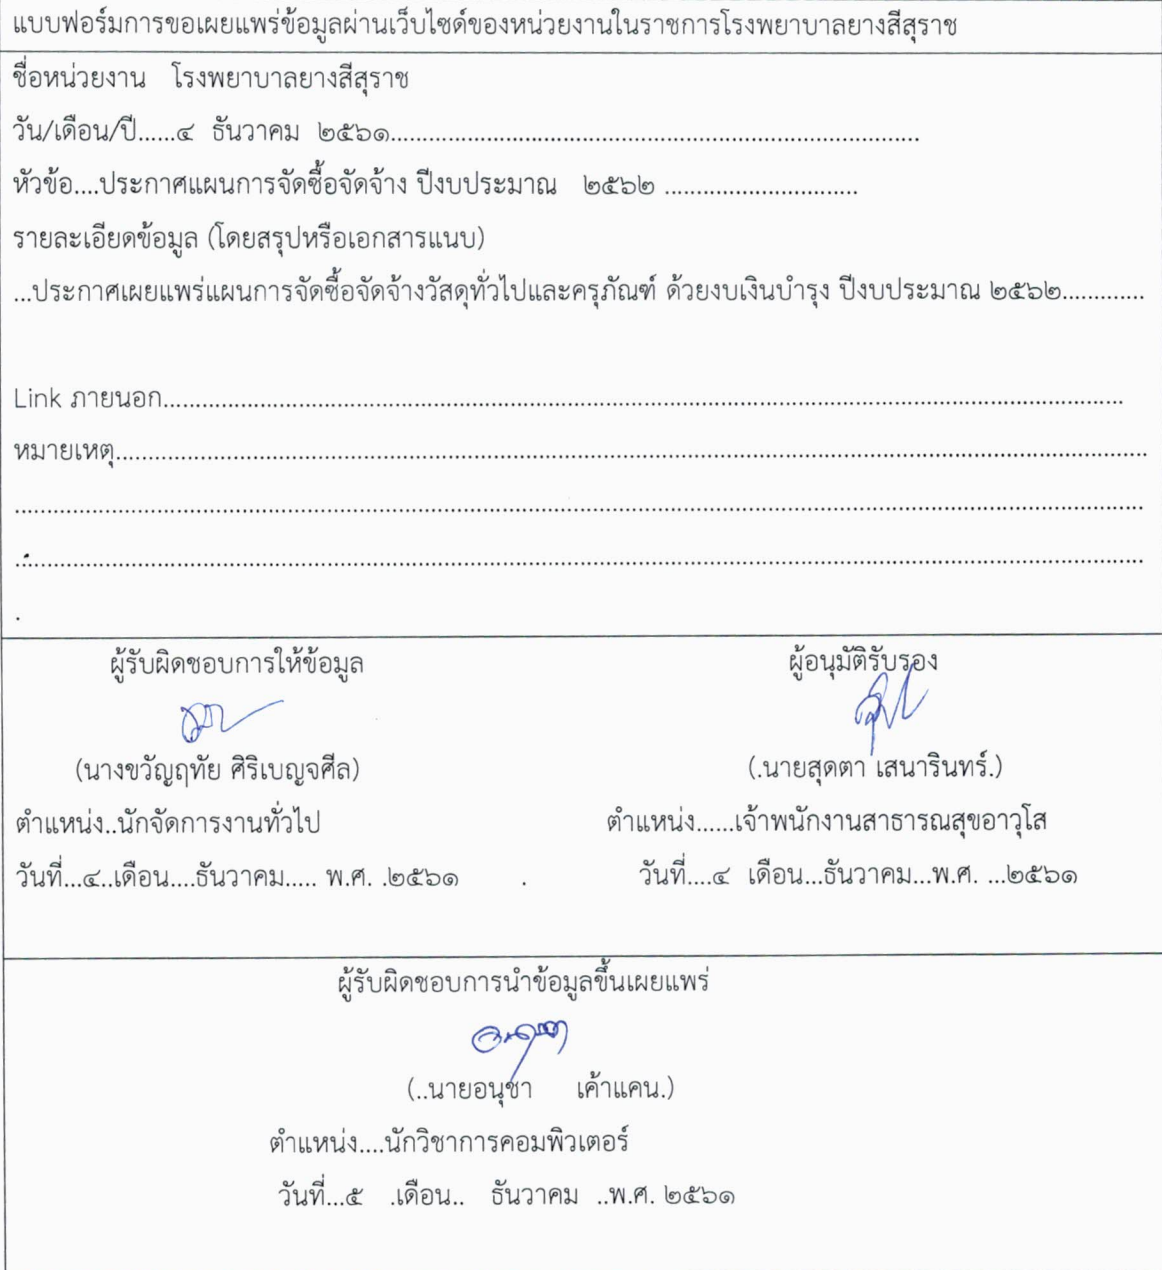 แบบฟอร์มการขอเผยแพร่ข้อมูลผ่านเว็บไซด์ของหน่วยงานในราชการโรงพยาบาลยางสีสุราช
ชื่อหน่วยงาน โรงพยาบาลยางสีสุราช
วัน/เดือน/ปี......๔ ธันวาคม ๒๕๖๑....................................................................................
หัวข้อ....ประกาศแผนการจัดซื้อจัดจ้าง ปีงบประมาณ ๒๕๖๒ ..............................
รายละเอียดข้อมูล (โดยสรุปหรือเอกสารแนบ)
...ประกาศเผยแพร่แผนการจัดซื้อจัดจ้างวัสดุทั่วไปและครุภัณฑ์ ด้วยงบเงินบำรุง ปีงบประมาณ ๒๕๖๒.............
Link ภายนอก......................................................................................................................................................
หมายเหตุ................................................................................................................................................................
ผู้รับผิดชอบการให้ข้อมูล ผู้อนุมัติรับรอง
(นางขวัญฤทัย ศิริเบญจศีล) (.นายสุดตา เสนารินทร์.)
ตำแหน่ง..นักจัดการงานทั่วไป ตำแหน่ง......เจ้าพนักงานสาธารณสุขอาวุโส
วันที่...๔..เดือน....ธันวาคม..... พ.ศ. .๒๕๖๑ . วันที่....๔ เดือน...ธันวาคม...พ.ศ. ...๒๕๖๑
ผู้รับผิดชอบการนำข้อมูลขึ้นเผยแพร่
(..นายอนุชา เค้าแคน.)
ตำแหน่ง....นักวิชาการคอมพิวเตอร์
วันที่...๕ .เดือน.. ธันวาคม ..พ.ศ. ๒๕๖๑